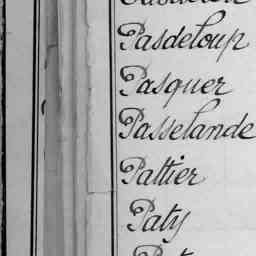 Pasdeloup
Pasquer
Passelande
Pattier
Paty